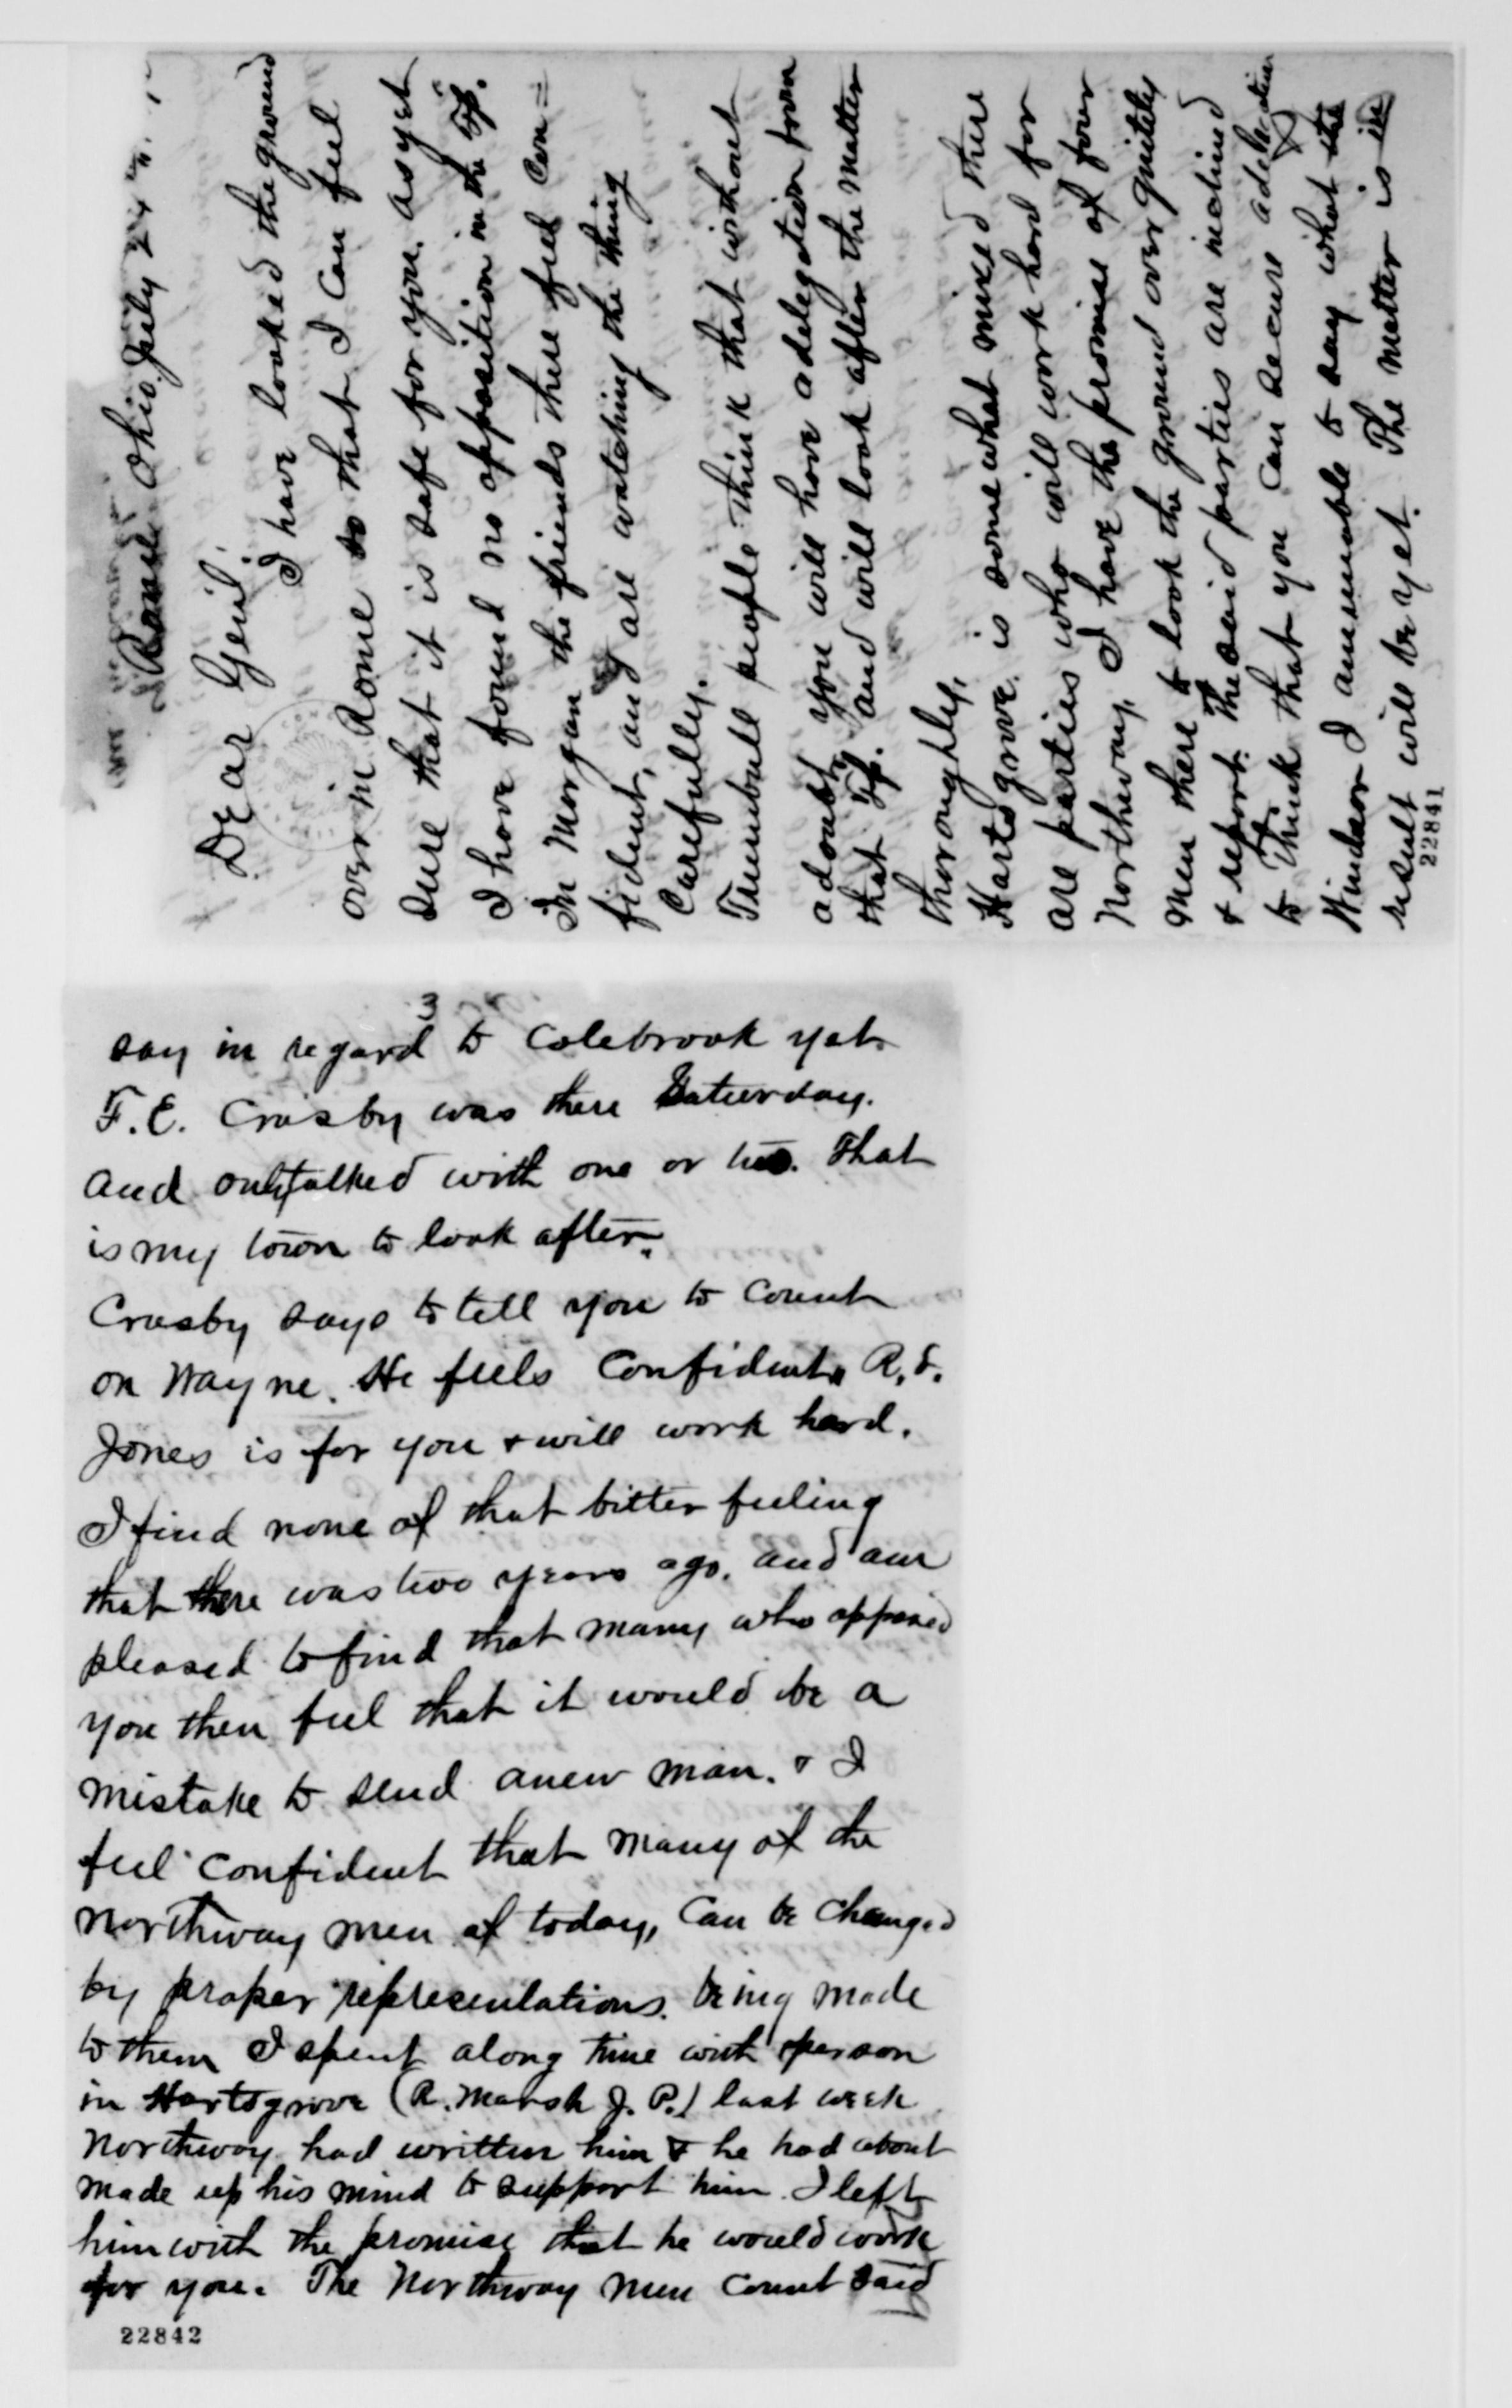 Rome Ohio July 24th
Dear Genl.
I have looked the ground
over in Rome so that I can feel
sure that it is safe for you. as yet
I have found no opposition in the Tp.
In Morgan the friends there feel con=
fident, and are watching the thing
carefully.
Trumbull people think that without
a doubt you will have a delegation from
that Tp. and will look after the matter
thoroughly.
Hartsgrove. is some what mixed there
are parties who will work hard for
Northway. I have the promise of four
men there to look the ground over quietly
& report. The said parties are inclined
to think that you can secure a delegation
Windsor I am unable to say what the
result will be yet. The matter is in
22841
3
say in regard to Colebrook yet.
F. E. Crosby was there Saturday.
and only talked with one or two. That
is my town to look after.
Crosby says to tell you to count
on Wayne. He feels confident.
Jones is for you & will work hard.
I find none of that bitter feeling
that there was two years ago. and am
pleased to find that many who opposed
you then feel that it would be a
mistake to send a new man. & I
feel confident that many of the
Northway men of today, can be changed
by proper representations. being made
to them I spent along time with person
in Hartsgrove (R. Marsh J. P.) last week
Northway had written him & he had about
made up his mind to support him. I left
him with the promise that he would work
for you. The Northway men count said
22842